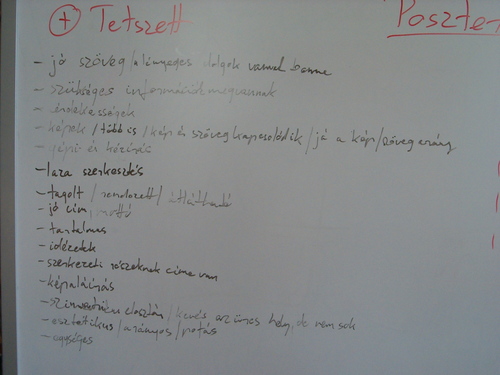 + Tetszett
Poszter
- jó szöveg / a lényeges dolgok vannak benne
- szükséges információk megvannak
- érdekességek
- képek / több is / kép és szöveg kapcsolódik / jó a kép/szöveg arány
- gépi és kézírás
- laza szerkesztés
- tagolt / rendezett / átlátható
- jó cím, mottó
- tartalmas
- idézetek
- szerkezeti részeknek címe van
- képaláírás
- szimmetrikus elosztás / kevés az üres hely, de nem sok
- esztétikus / arányos /
- egységes